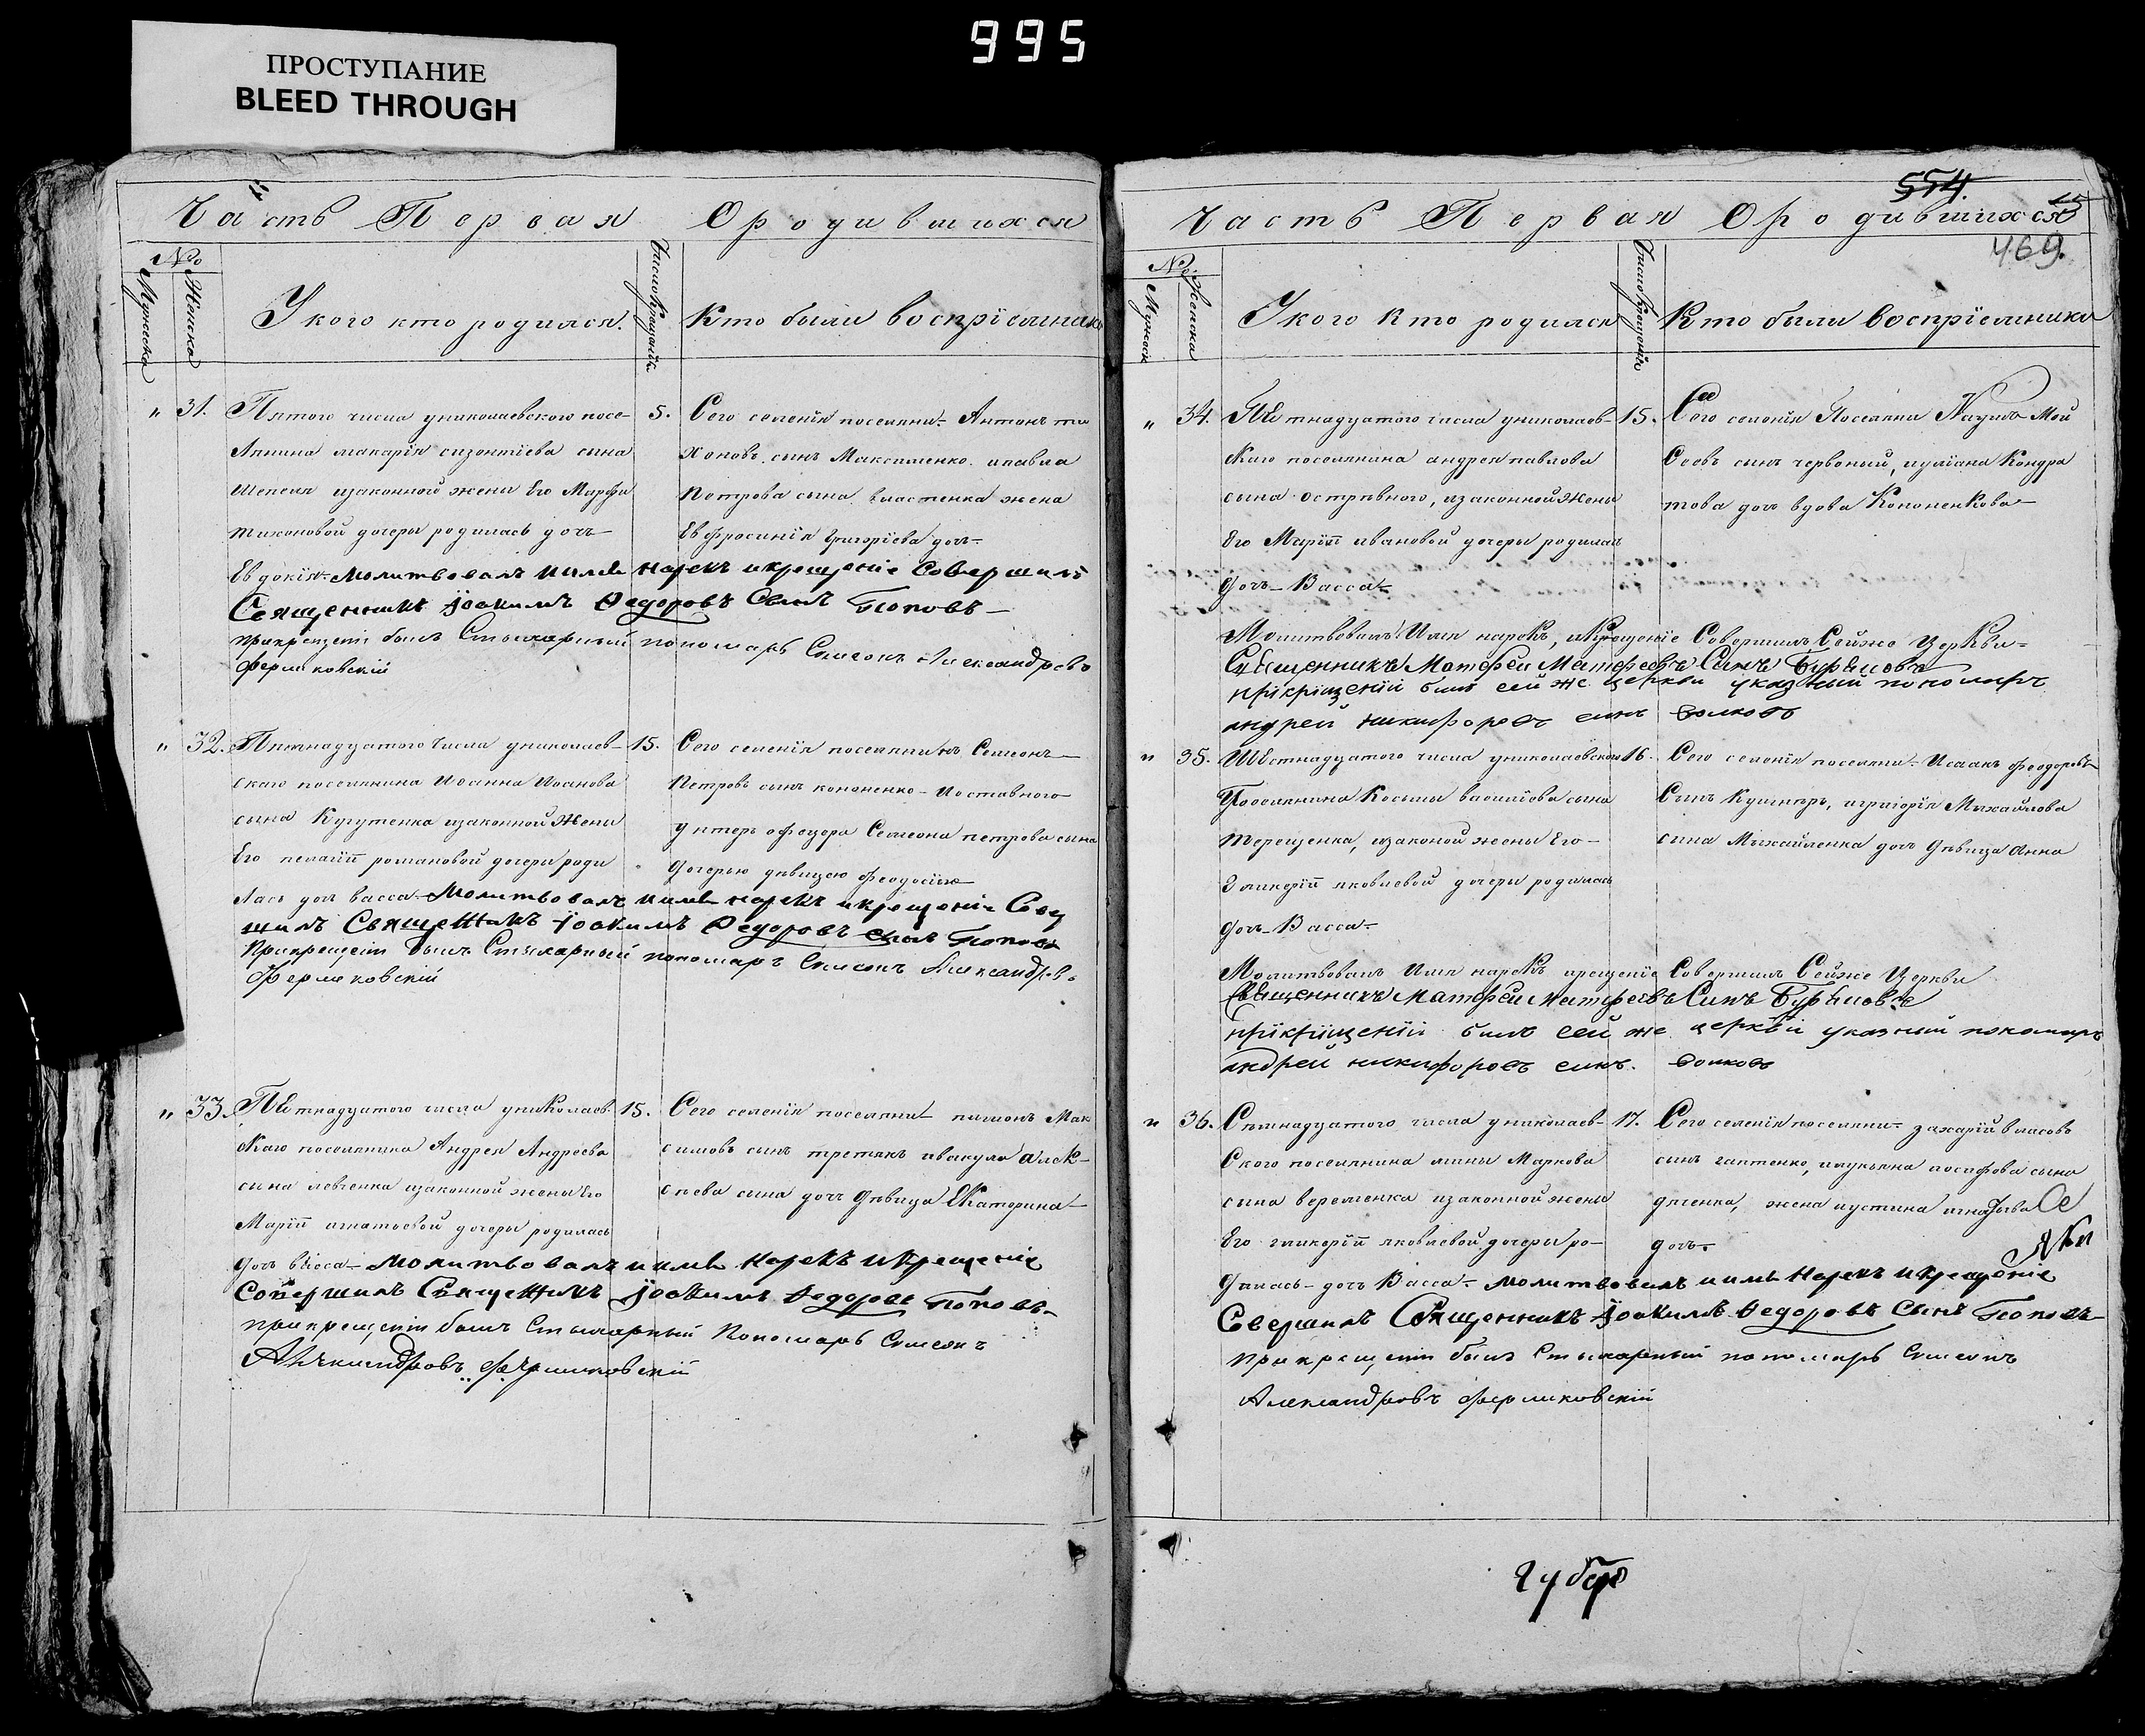 995
ПРОСТУПАНИЕ
BLEED THROUGH
Часть Первая Ородившихся
№
Мужеска
Женска
У кого кто родился.
Число Крещенія
Кто были воспріемники
" 31. Пятого числа униколаевского посе-
лянина макарія сизонтіева сына
Шепеля изаконной жены Его Марфи
тихоновой дочеры родилась дочь
Евдокія- Молитвовалъ имя нарекъ икрещеніе Совершилъ
Священникъ Іоакимъ Федоровъ Сынъ Поповъ-
прикрещеніи былъ Стыхарный пономарь Симеонъ Александровъ
Фермковскій
5. Сего селенія поселяни- Антонъ ти
хоновъ сынъ Максименко. ипавла
Петрова сына власенка жена
Евфросинія Григоріева доч-
" 32. Пятнадцатого Числа униколаев-
скаго поселянина Иоанна Иоанова
сына Кугутенка изаконной Жены
Его пелагіи романовой дочеры роди
лась доч васса- Молитвовалъ имя нарекъ икрещеніе Сове
шилъ Священникъ Іоакимъ Федоровъ Сынъ Поповъ
Прикрещеніи былъ Стыхарный пономарь Симеонъ Александров.
Фермковскій
15. Сего селенія поселянинъ Семеонъ
Петровъ сынъ кононенко- Иоставного
унтеръ офецера Семеона петрова сына
дочерью дѣвицею Феодосією
" 33. ПЯтнадцатого числа униколаев.
скаго поселянина Андрея Андреева
сына левченка изаконной жены Его
Маріи игнатьевой дочеры родилась
доч васса- молитвовалъ имя нарекъ икрещеніе
Совершилъ Священникъ Іоакимъ Федоровъ Поповъ-
прикрещеніи былъ Стыхарный Пономарь Симеонъ
Александровъ Фермковскій
15. Сего селенія поселяни- пименъ Мак
симовъ сынъ третякъ ивакула алек-
сѣева сына доч дѣвица Екатерина-
554.
469.
Часть Первая Ородившихся
№
Мужеск
Женска
У кого Кто родился
Число Крещенія
Кто были воспріемники
" 34. ПЯтнадцатого числа униколаев-
скаго поселянина андрея павлова
сына острѣвного, изаконной жены
Его Маріи ивановой дочеры родилас
дочь- Васса-
Молитвовалъ Имя нарекъ, иКрещеніе Совершилъ Сейже Церкви-
Священникъ Матфей Матфеевъ Синъ Бурѣмовъ
прікріщеніи билъ сей же церкви указний пономаръ
андрей никифоровъ синъ волковъ
15. Сего селенія Поселяни Наумъ Мой
Сеевъ сынъ червоный, иуліана Кондра
това доч вдова Кононенкова-
" 35. Шестнадцатого числа униколаевского
Поселянина Космы василіова сына
терещенка, изаконой жены Его-
Гликеріи яковлевой дочеры родилась
доч- Васса-
Молитвовалъ Имя нарекъ ирещеніе Совершилъ Сейже Церкви
Священникъ Матфей Матфеевъ Синъ Бурѣмовъ
прікріщеніи билъ сей же церкви указний пономаръ
андрей никифоровъ синъ. волковъ
16. Сего селенія поселяни- Исаакъ Феодоровъ
Сынъ Кушниръ, игригорія Михайлова
сына Михайленка доч дѣвица Анна
" 36. Сѣмнадцатого числа униколаев-
Ского поселянина мины Маркова
сына веременка изаконной жены
Его гликеріи яковлевой дочеры ро-
дилась- доч Васса- молитвовалъ имя нарекъ икрещеніе
Совершилъ Священникъ Іоакимъ Федоровъ Сынъ Поповъ-
прикрещеніи былъ Стыхарный пономарь Симеонъ
Александровъ Фермковскій
17. Сего селенія поселяни- захарій власовъ
сынъ гаптенко, илукьяна иосифова сына
дяченка, жена иустина
доч-